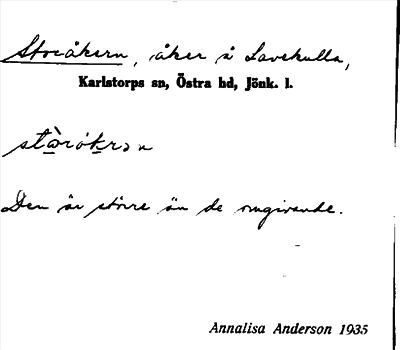 Storåkern, åker å Lavekulla,
Karlstorps sn, Östra hd, Jönk. l.
Den är större än de omgivande.
Annalisa Anderson 1935